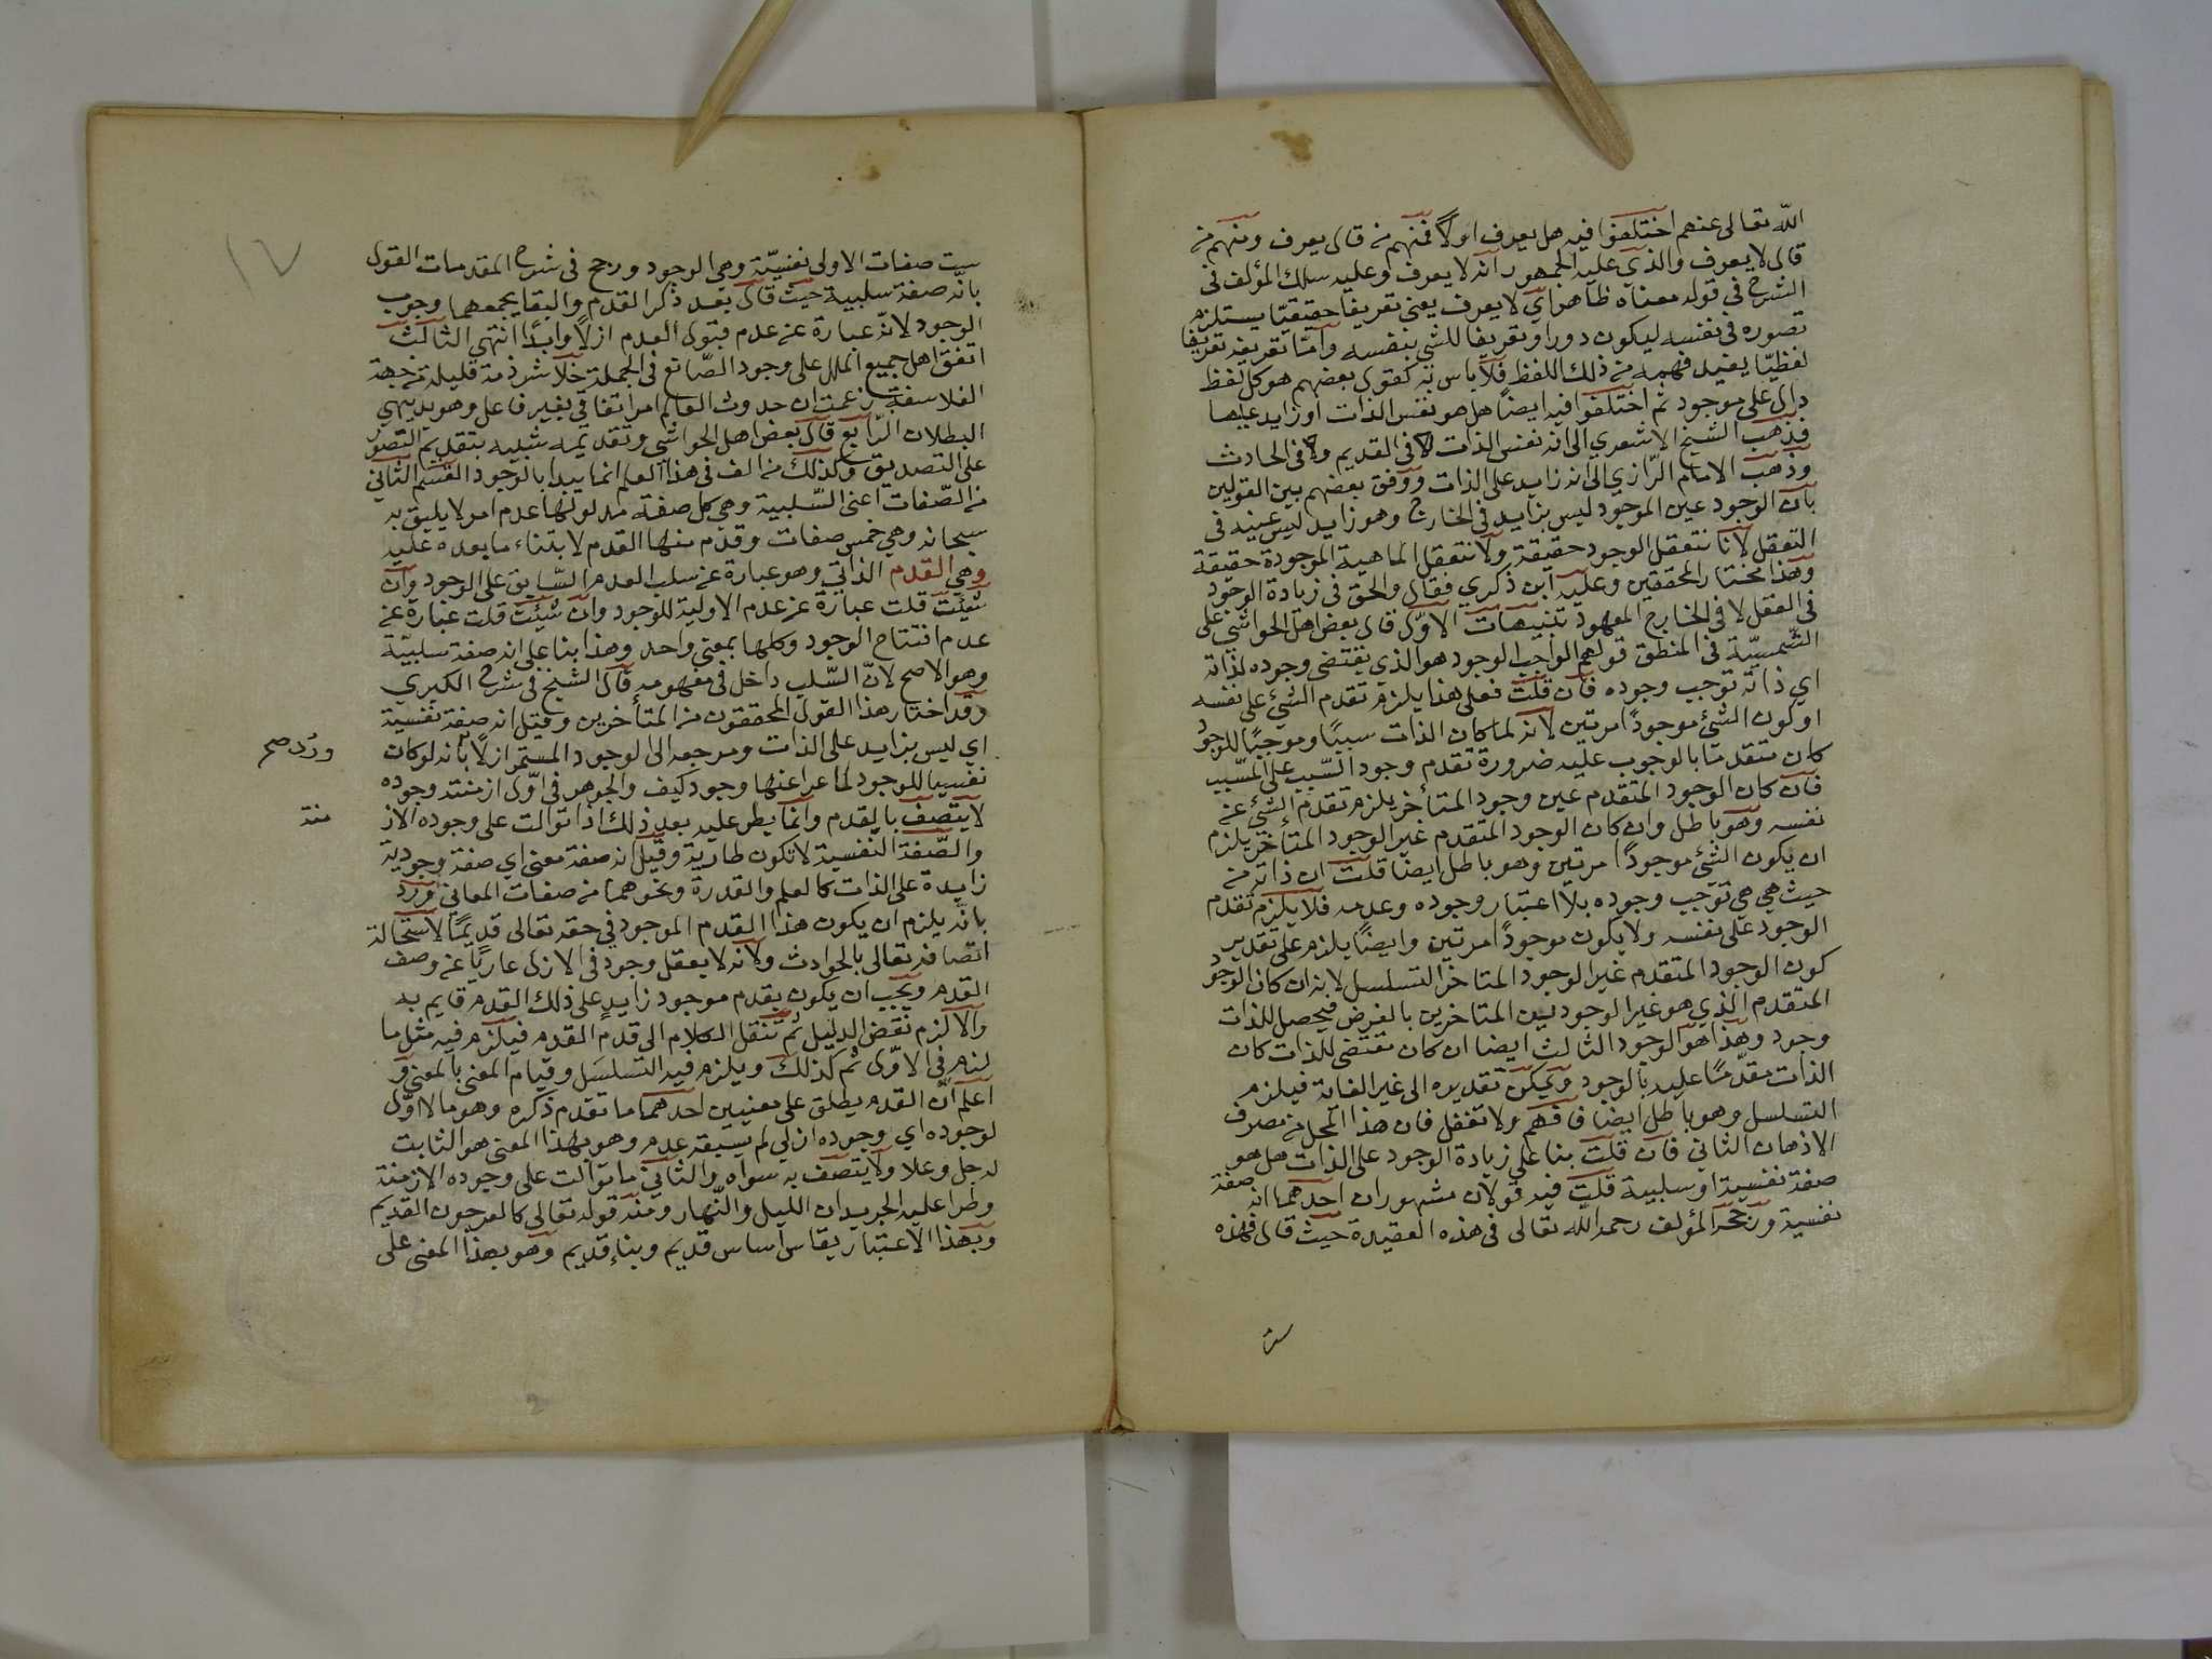 الله تعالى عنهم اختلفوا فيه هل يعرف اولا فمنهم من قال يعرف ومنهم من
قال لا يعرف والذي عليه الجمهور انه لا يعرف وعليه سلك المؤلف في
الشرح في قوله معناه ظاهر اي لا يعرف يعني تعريفا حقيقيّا يستلزم
تصوره في نفسه ليكون دورا وتعريفا للشي بنفسه وامّا تعريفه تعريفا
لفظيّا يفيد فهمه من ذلك اللفظ فلا باس به كقول بعضهم هو كل لفظ
دال على موجود ثم اختلفوا فيه ايضاً هل هو نفس الذات او زايد عليها
فذهب الشيخ الاشعري الى انه نفس الذات لا في القديم ولا في الحادث
وذهب الامام الرّازي الى انه زايد على الذات ووفق بعضهم بين القولين
بان الوجود عين الموجود ليس بزايد في الخارج وهو زايد ليس عينه في
التعقل لانّا نتعقل الوجود حقيقة ولا نتعقل الماهية الموجودة حقيقة
وهذا مختار المحققين وعليه ابن ذكري فقال والحق في زيادة الوجود
في العقل لا في الخارج المعهود تنبيهات الاوّل قال بعض اهل الحواشي على
الشمسيّة في المنطق قولهم الواجب الوجود هو الذي يقتضي وجوده لذاته
اي ذاته توجب وجوده فان قلت فعلى هذا يلزم تقدم الشيء على نفسه
او كون الشيء موجوداً مرتين لانه لما كان الذات سببًا وموجبًا للوجود
كان متقدمّا بالوجوب عليه ضرورة تقدم وجود السّبب على المسّبب
فان كان الوجود المتقدم عين وجود المتأخر يلزم تقدم الشيء عن
نفسه وهو باطل وان كان الوجود المتقدم غير الوجود المتاخر يلزم
ان يكون الشيء موجوداً مرتين وهو باطل ايضا قلت ان ذاته من
حيث هي هي توجب وجوده بلا اعتبار وجوده وعدمه فلا يلزم تقدم
الوجود على نفسه ولا يكون موجوداً مرتين وايضاً يلزم على تقدير
كون الوجود المتقدم غير الوجود المتاخر التسلسل لانه ان كان الوجود
المتقدم الذي هو غير الوجودين المتاخرين بالفرض فيحصل للذات
وجود وهذا هو الوجود الثالث ايضا ان كان مقتضى للذات كان
الذات مقدّمًا عليه بالوجود ويمكن تقديره الى غير الغاية فيلزم
التسلسل وهو باطل ايضا فافهم ولا تغفل فان هذا المحل من مصرف
الاذهان الثاني فان قلت بنا على زيادة الوجود على الذات هل هو
صفة نفسية او سلبية قلت فيه قولان مشهوران احدهما انه صفة
نفسية ورجحه المؤلف رحمه الله تعالى في هذه العقيدة حيث قال فهذه
ست
١٧
ست صفات الاولى نفسيّة وهي الوجود ورجح في شرح المقدمات القول
بانّه صفة سلبية حيث قال بعد ذكر القدم والبقا يجمعهما وجوب
الوجود لانّه عبارة عن عدم قبول العدم ازلاً وابدًا انتهى الثالث
اتفق اهل جميع الملل على وجود الصّانع في الجملة خلا شرذمة قليلة من جهة
الفلاسفة زعمت ان حدوث العالم امر اتفاقي بغير فاعل وهو بديهي
البطلان الرّابع قال بعض اهل الحواشي وتقديمه شبيه بتقديم التصور
على التصديق وكذلك من الف في هذا العلم انما يبدا بالوجود القسم الثاني
من الصّفات اعني السّلبية وهي كل صفة مدلولها عدم امر لا يليق به
سبحانه وهي خمس صفات وقدّم منها القدم لابتناء ما بعده عليه
وهي القدم الذاتي وهو عبارة عن سلب العدم السّابق على الوجود وان
شيئت قلت عبارة عن عدم الاولية للوجود وان شيئت قلت عبارة عن
عدم افتتاح الوجود وكلها بمعنى واحد وهذا بنا على انه صفة سلبيّة
وهو الاصح لانّ السّلب داخل في مفهومه قال الشيخ في شرح الكبرى
وقد اختار هذا القول المحققون من المتأخرين وقيل انه صفة نفسية
اي ليس بزايد على الذات ومرجعه الى الوجود المستمر ازلاً بانه لو كان
ورُد صح
نفسيا للموجود لما عرا عنها وجود كيف والجوهر في اوّل ازمنته وجوده
لا يتصف بالقدم وانما يطر عليه بعد ذلك اذا توالت على وجوده الاز
منة
والصّفة النفسية لا تكون طارية وقيل انه صفة معنى اي صفة وجودية
زايدة على الذات كالعلم والقدرة ونحوهما من صفات المعاني ورد
بانّه يلزم ان يكون هذا القدم الموجود في حقه تعالى قديمًا لاستحالة
اتصافه تعالى بالحوادث ولانه لا يعقل وجود في الازل عاريًا عن وصف
القدم ويجب ان يكون بقدم موجود زايد على ذلك القدم قايم به
والا لزم نقض الدليل ثم تنقل الكلام الى قدم القدم فيلزم فيه مثل ما
لزم في الاوّل ثم كذلك ويلزم فيه التسلسل وقيام المعنى بالمعنى و
اعلم انّ القدم يطلق على معنيين احدهما ما تقدم ذكره وهو ما لا اوّل
لوجوده اي وجوده ازلي لم يسبقه عدم وهو بهذا المعنى هو الثابت
له جل وعلا ولا يتصف به سواه والثاني ما توالت على وجوده الازمنة
وطرا عليه الجديدان الليل والنّهار ومنه قوله تعالى كالعرجون القديم
وبهذا الاعتبار يقال اساس قديم وبناء قديم وهو بهذا المعنى على